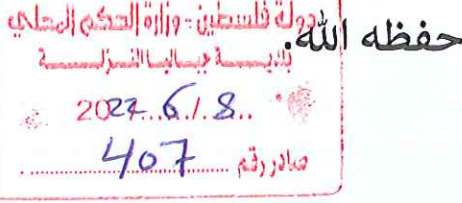 حفظه الله.
دولة فلسطين - وزارة الحكم المحلي
بلدية جباليا النزلة
2022.6.1.8..
صادر رقم ....407....